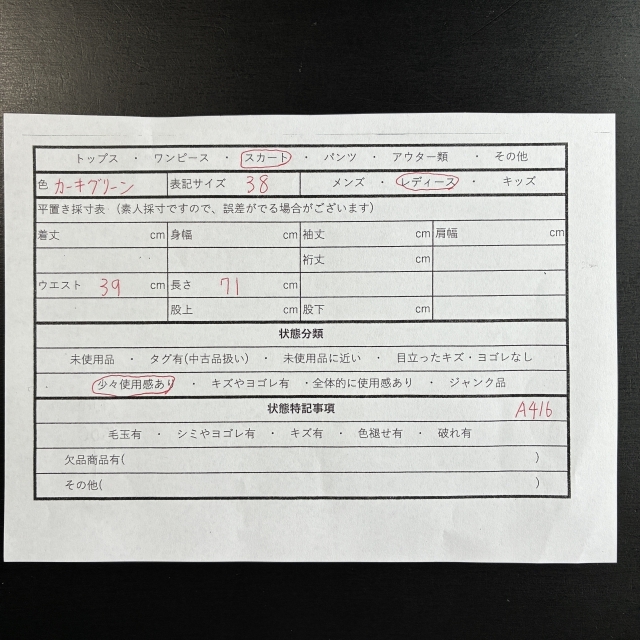 トップス ・ ワンピース ・ スカート ・ パンツ ・ アウター類 ・ その他
色 カーキグリーン 表記サイズ 38 メンズ ・ レディース ・ キッズ
平置き採寸表 (素人採寸ですので、誤差がでる場合がございます)
着丈 cm 身幅 cm 袖丈 cm 肩幅 cm
裄丈 cm
ウエスト 39 cm 長さ 71 cm
股上 cm 股下 cm
状態分類
未使用品 ・ タグ有(中古品扱い) ・ 未使用品に近い ・ 目立ったキズ・ヨゴレなし
少々使用感あり ・ キズやヨゴレ有 ・全体的に使用感あり ・ ジャンク品
状態特記事項 A416
毛玉有 ・ シミやヨゴレ有 ・ キズ有 ・ 色褪せ有 ・ 破れ有
欠品商品有( )
その他( )